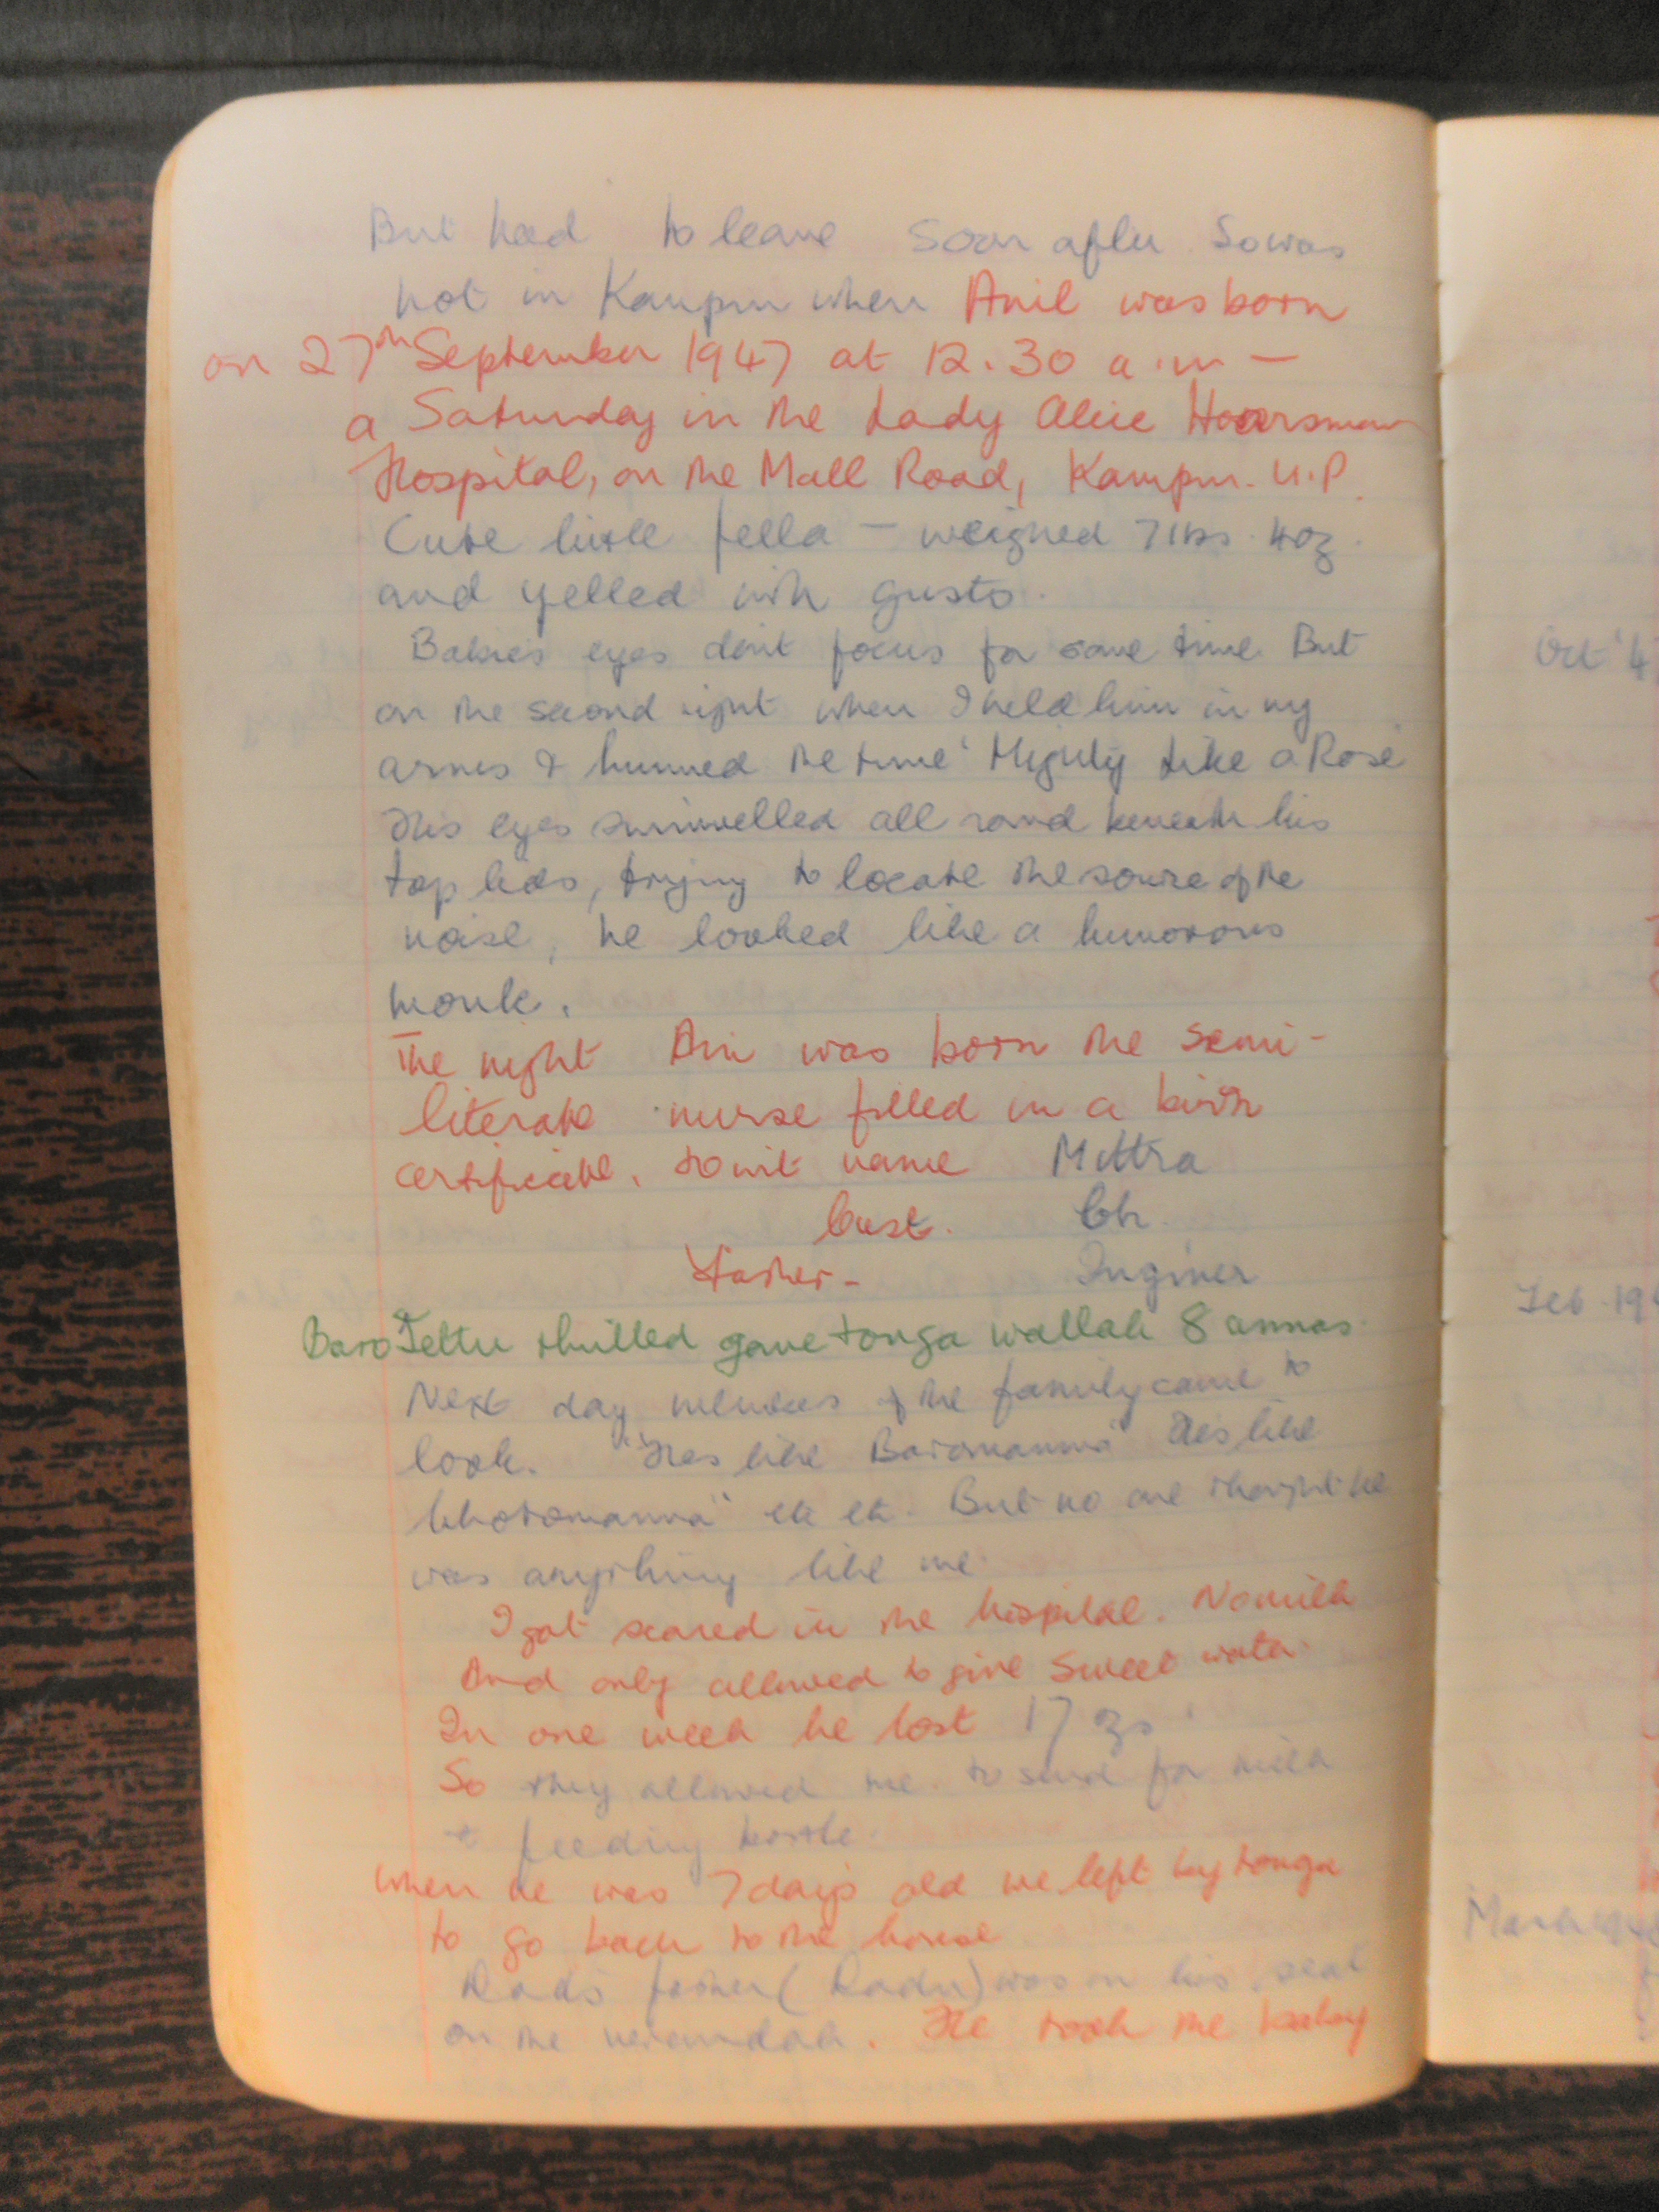 But had to leave soon after. So was
not in Kanpur when Anil was born
on 27th September 1947 at 12.30 a.m —
a Saturday in the Lady Alice Hoarsman
Hospital, on the Mall Road, Kanpur. U.P.
Cute little fella — weighed 7 lbs. 4 oz.
and yelled with gusto.
Babies eyes dont focus for some time. But
on the second night when I held him in my
arms & hummed the tune 'Mighty Like a Rose'
His eyes swivelled all round beneath his
top lids, trying to locate the source of the
noise, he looked like a humorous
monk.
The night Ani was born the semi-
literate nurse filled in a birth
certificate. to wit name Mittra
Cast. Ch.
Father - Inginer
Baro Jettu thrilled gave tonga wallah 8 annas.
Next day members of the family came to
look. "Hes like Baromamma" Hes like
Chotomamma" etc etc. But no one thought he
was anything like me.
I got scared in the hospital. No milk
And only allowed to give sweet water.
In one week he lost 17 ozs.
So they allowed me to send for milk
+ feeding bottle.
When he was 7 days old we left by tonga
to go back to the house
Dads father (Dadu) was on his seat
on the verandah. He took the baby
Oct '4
Feb. 194
March 194